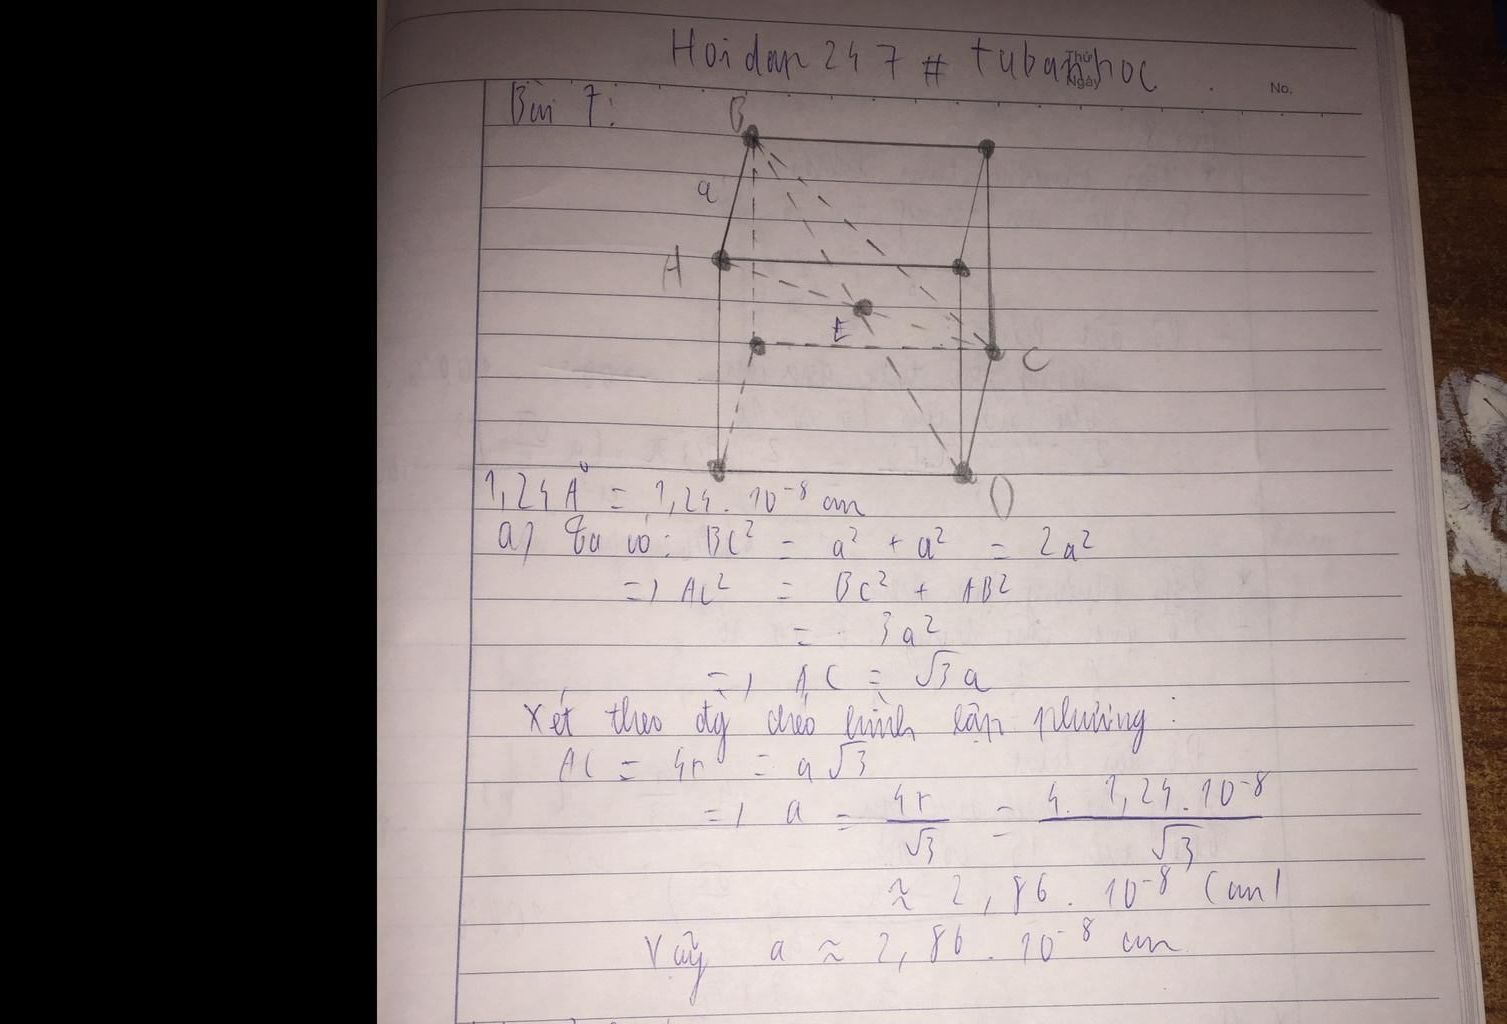 Hoidap247 # tubanhoc
Thứ
Ngày
No.
Bài 7:
B
a
A
E
C
D
1,24 Å = 1,24 . 10⁻⁸ cm
a) Ta có: BC² = a² + a² = 2a²
=) AC² = BC² + AB²
= 3a²
=) AC = √3 a
Xét theo đg chéo hình lập phương:
AC = 4r = a√3
=) a = 4r/√3 = 4. 1,24.10⁻⁸/√3
≈ 2,86 . 10⁻⁸ (cm)
Vậy a ≈ 2,86 . 10⁻⁸ cm